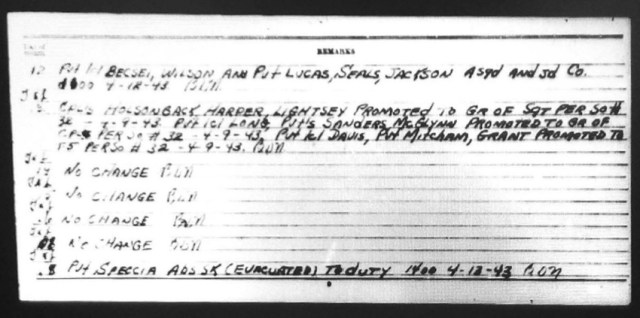 REMARKS
12 Pvt 1cl BECSEI, WILSON AND Pvt LUCAS, SEALS, JACKSON Asgd and Jd Co.
1400 4-12-43
CPLS HOLSONBACK HARPER LIGHTSEY PROMOTED TO GR OF SGT PER SO#
32 - 4-9-43. Pvt 1cl LONG Pvts SANDERS, McGLYNN PROMOTED TO GR OF
PER SO # 32 - 4-9-43, Pvt 1cl DAVIS, Pvt MITCHAM, GRANT PROMOTED TO
T5 PER SO # 32 - 4-9-43.
NO CHANGE
NO CHANGE
NO CHANGE
NO CHANGE
Pvt SPECCIA ABS SK (EVACUATED) TO duty 1400 4-12-43